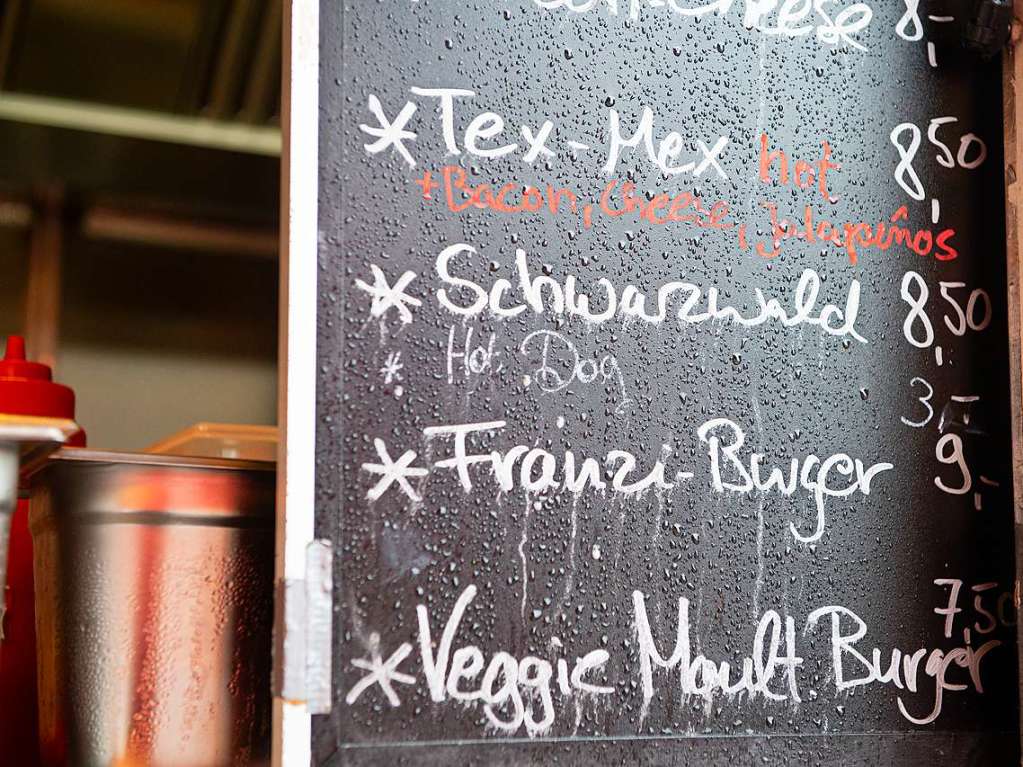 Cheese 8,-
* Tex-Mex hot 8,50
+ Bacon, Cheese, Jalapiños
* Schwarzwald 8,50
* Hot Dog 3,-
* Franzi-Burger 9,-
7,50
* Veggie Moult Burger